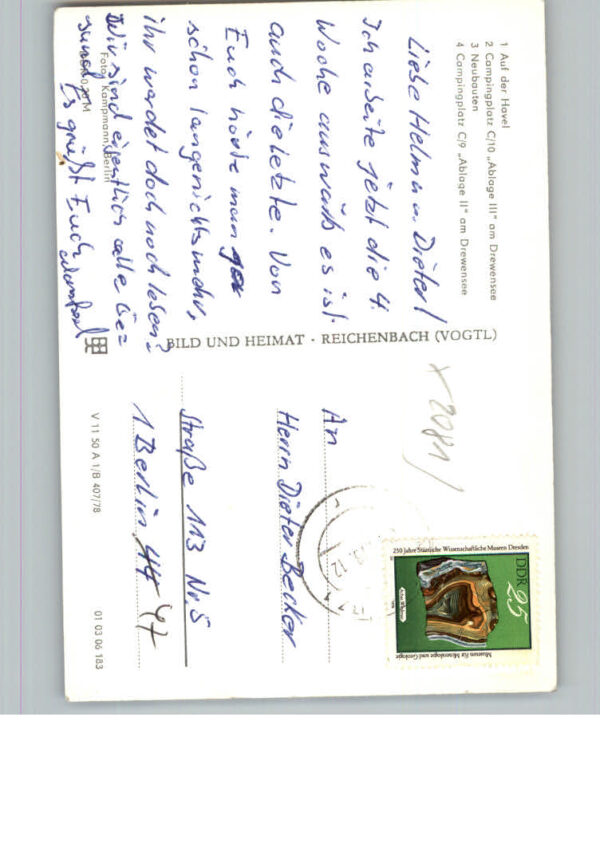 1 Auf der Havel
2 Campingplatz C/10 „Ablage III“ am Drewensee
3 Neubauten
4 Campingplatz C/9 „Ablage II“ am Drewensee
Liebe Helma u. Dieter!
Ich arbeite jetzt die 4.
Woche auswärts es ist
auch die letzte. Von
Euch hört man gar
schon lange nichts mehr,
ihr werdet doch noch lesen?
Wir sind eigentlich alle Ge-
sund
Es grüßt Euch
Foto: Kampmann, Berlin
BILD UND HEIMAT · REICHENBACH (VOGTL)
V 11 50 A 1/B 407/78
01 03 06 183
X 2081/
An
Herrn Dieter Becker
Straße 113 Nr 5
1 Berlin 47
250 Jahre Staatliche Wissenschaftliche Museen Dresden
DDR 25
Museum für Mineralogie und Geologie